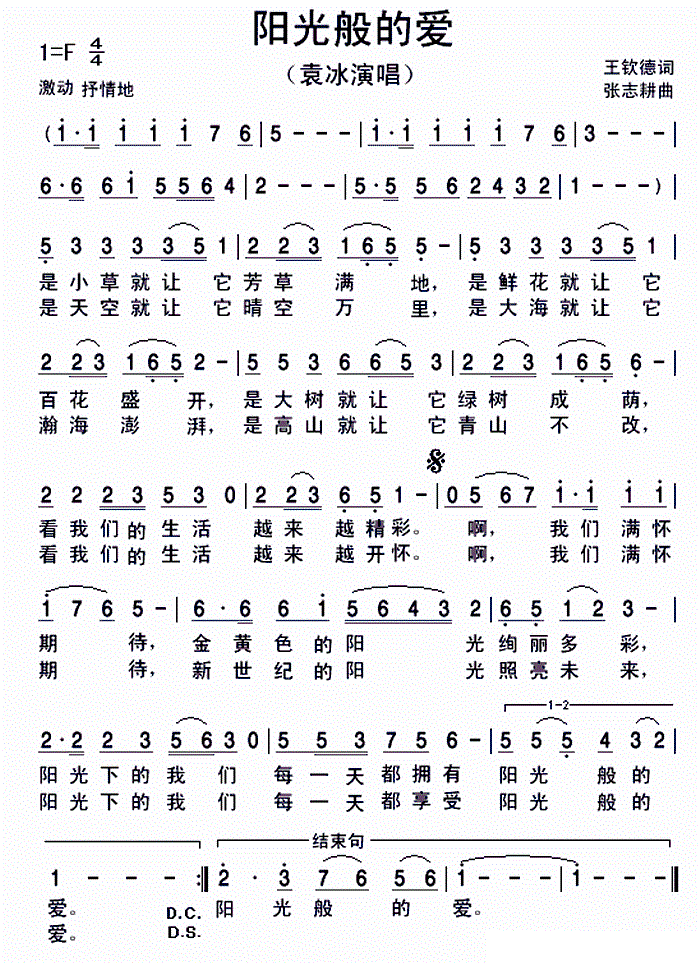 阳光般的爱
1=F 4/4
（袁冰演唱）
王钦德词
激动 抒情地
张志耕曲
(i·i i i i 7 6 | 5 - - - | i·i i i i 7 6 | 3 - - - |
6·6 6 i 5 5 6 4 | 2 - - - | 5·5 5 6 2 4 3 2 | 1 - - - )|
5 3 3 3 3 5 1 | 2 2 3 1 6 5 5 - | 5 3 3 3 3 5 1
是小草就让 它芳草 满 地，是鲜花就让 它
是天空就让 它晴空 万 里，是大海就让 它
2 2 3 1 6 5 2 - | 5 5 3 6 6 5 3 | 2 2 3 1 6 5 6 - |
百花 盛 开，是大树就让 它绿树 成 荫，
瀚海 澎 湃，是高山就让 它青山 不 改，
2 2 2 3 5 3 0 | 2 2 3 6 5 1 - | 0 5 6 7 i·i i i
看我们的生活 越来 越精彩。 啊， 我们满怀
看我们的生活 越来 越开怀。 啊， 我们满怀
i 7 6 5 - | 6·6 6 i 5 6 4 3 2 | 6 5 1 2 3 - |
期 待， 金黄色的阳 光绚丽多彩，
期 待， 新世纪的阳 光照亮未来，
1-2
2·2 2 3 5 6 3 0 | 5 5 3 7 5 6 - | 5 5 5 4 3 2
阳光下的我们 每一天都拥有 阳光 般的
阳光下的我们 每一天都享受 阳光 般的
结束句
1 - - - :‖ 2 · 3 7 6 5 6 | i - - - | i - - - ‖
爱。 D.C. 阳 光般 的 爱。
爱。 D.S.